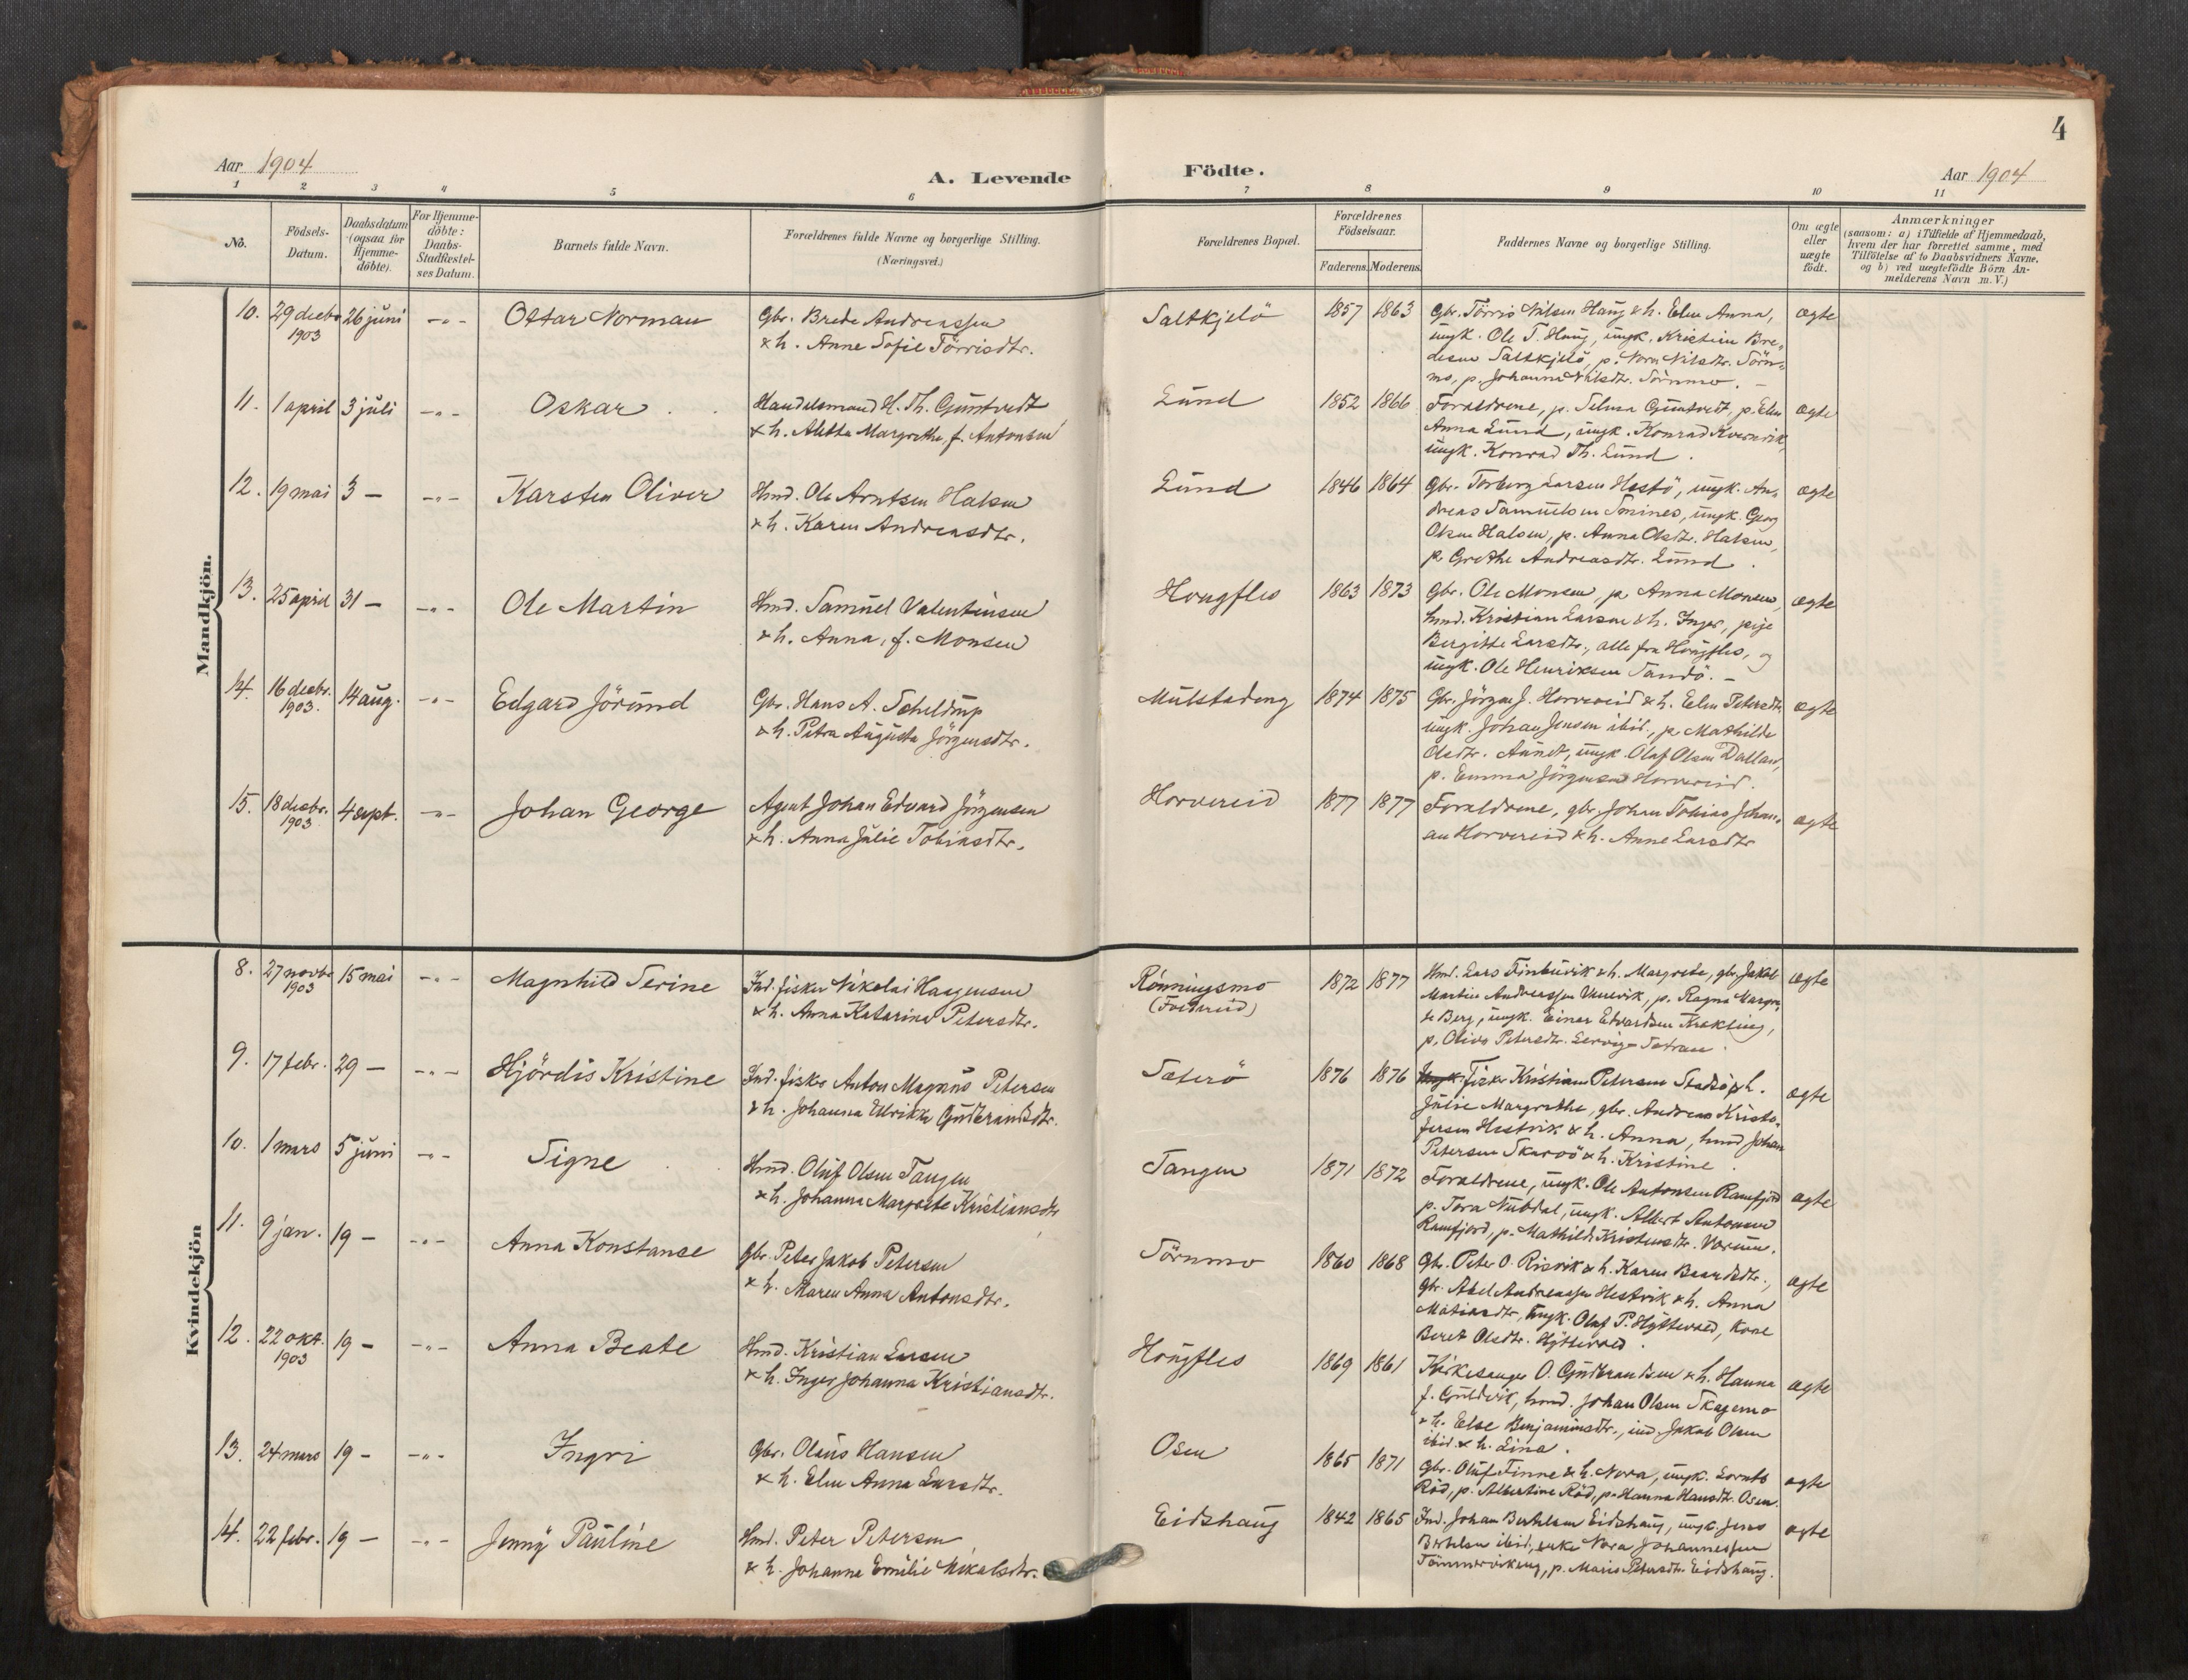 4
Aar 1904
A. Levende Födte.
Aar 1904
1 2 3 4 5 6 7 8 9 10 11
No.
Födsels-
Datum.
Daabsdatum
(ogsaa for
Hjemme-
döbte).
For Hjemme-
döbte:
Daabs-
Stadfæstel-
ses Datum.
Barnets fulde Navn.
Forældrenes fulde Navne og borgerlige Stilling.
(Næringsvei.)
Forældrenes Bopæl.
Forældrenes
Födselsaar.
Faderens. Moderens.
Faddernes Navne og borgerlige Stilling.
Om ægte
eller
uægte
födt.
Anmærkninger
(saasom: a) i Tilfælde af Hjemmedaab,
hvem der har forrettet samme, med
Tilföielse af to Daabsvidners Navne.
og b) ved uægtefödte Börn An-
melderens Navn m.V.)
Mandkjön.
10. 29 decbr. 1903 26 juni -"- Ottar Norman
Gbr. Brede Andreassen
& h. Anne Sofie Törrisdtr.
Saltkjelö 1857 1863
Gbr. Törris Nilsen Haug & h. Elen Anna,
ungk. Ole T. Haug, ungk. Kristian Bre-
desen Saltkjelö, p. Nora Nilsdtr. Törn-
mo, p. Johanna Nilsdtr. Törnmo. –
ægte
11. 1 april 3 juli -"- Oskar
Handelsmand H. Th. Guntvedt
& h. Aletta Margrethe, f. Antonsen
Lund 1852 1866
Forældrene, p. Selma Guntvedt, p. Elen
Anna Lund, ungk. Konrad Kvernvik,
ungk. Konrad Th. Lund.
ægte
12. 19 mai 3 – -"- Karsten Oliver
Hmd. Ole Arntsen Halsen
& h. Karen Andreasdtr.
Lund 1846 1864
Gbr. Torberg Larsen Hestö, ungk. An-
dreas Samuelsen Smines, ungk. Georg
Olsen Halsen, p. Anna Olsdtr. Halsen,
p. Grethe Andreasdtr. Lund.
ægte
13. 25 april 31 – -"- Ole Martin
Hmd. Samuel Valentinsen
& h. Anna, f. Monsen
Hougfles 1863 1873
Gbr. Ole Monsen, p. Anna Monsen,
hmd. Kristian Larsen & h. Inger, pige
Bergitte Larsdtr., alle fra Hougfles, og
ungk. Ole Henriksen Sandö. –
ægte
14. 16 decbr. 1903. 14 aug. -"- Edgard Jörund
Gbr. Hans A. Scheldrup
& h. Petra Augusta Jörgensdtr.
Mulstadeng 1874 1875
Gbr. Jörgen J. Horvereid & h. Elen Petersdtr.
ungk. Johan Jensen ibid., p. Mathilde
Olsdtr. Aunet, ungk. Olaf Olsen Dallan,
p. Emma Jörgensen Horvereid.
ægte
15. 18 decbr. 1903 4 sept. -"- Johan George
Agent Johan Edvard Jörgensen
& h. Anna Julie Tobiasdtr.
Horvereid 1877 1877
Forældrene, gbr. Johan Tobias Johan-
sen Horvereid & h. Anne Larsdtr
ægte
Kvindekjön
8. 27 novbr. 1903 15 mai -"- Magnhild Serine
Ind. fisker Nikolai Haagensen
& h. Anna Katarina Petersdtr.
Rönningsmo
(Foldereid)
1872 1877
Hmd. Lars Finbuvik & h. Margrete, gbr. Jakob
Martin Andreassen, p. Ragna Margre-
te Berg, ungk. Einar Edvardsen Krekling,
p. Oliva Petersdtr.
ægte
9. 17 febr. 29 – -"- Hjördis Kristine
Ind. fisker Anton Magnus Petersen
& h. Johanna Ulrikke Gudbrandsdtr.
Sæterö 1876 1876
Fisker Kristian Petersen & h.
Julie Margrethe, gbr. Andreas Kristo-
fersen Hestvik & h. Anna, hmd Johan
Petersen Skarvö & h. Kristine.
ægte
10. 1 mars 5 juni -"- Signe
Hmd. Oluf Olsen Tangen
& h. Johanna Margrete Kristiansdtr
Tangen 1871 1872
Forældrene, ungk. Ole Antonsen Ramfjord
p. Tora Nubdal, ungk. Albert Antonsen
Ramfjord, p. Mathilde Kristensdtr. Varum.
ægte
11. 9 jan. 19 – -"- Anna Konstanse
Gbr. Peter Jakob Petersen
& h. Maren Anna Antonsdtr.
Törnmo 1860 1868
Gbr. Peter O. Risvik & h. Karen Baardsdtr.,
gbr. Abel Andreassen Hestvik & h. Anna
Matiasdtr, ungk. Olaf P. Hyttevaed, kone
Beret Olsdtr. Hyttevaed.
ægte
12. 22 okt. 1903 19 – -"- Anna Beate
Hmd. Kristian Larsen
& h. Inger Johanna Kristiansdtr.
Hougfles 1869 1861
Kirkesanger O. Gudbrandsen & h. Hanna
f. Guldvik, hmd. Johan Olsen Skagemo
& h. Else Benjaminsdtr., ind. Jakob Olsen
ibid. & h. Lina.
ægte
13. 24 mars 19 – -"- Ingri
Gbr. Olaus Hansen
& h. Elen Anna Larsdtr.
Osen 1865 1871
Gbr. Oluf Finne & h. Nora, ungk. Lornts
Röd, p. Albertine Röd, p. Hanna Hansdtr. Osen.
ægte
14. 22 febr. 19 – -"- Jenny Pauline
Hmd. Peter Petersen
& h. Johanna Emilie Mikalsdtr.
Eidshaug 1842 1865
Ind. Johan Bertelsen Eidshaug, ungk. Jens
Bertelsen ibid., enke Nora Johannessen
Tömmervikeng, p. Maris Petersdtr. Eidshaug.
ægte